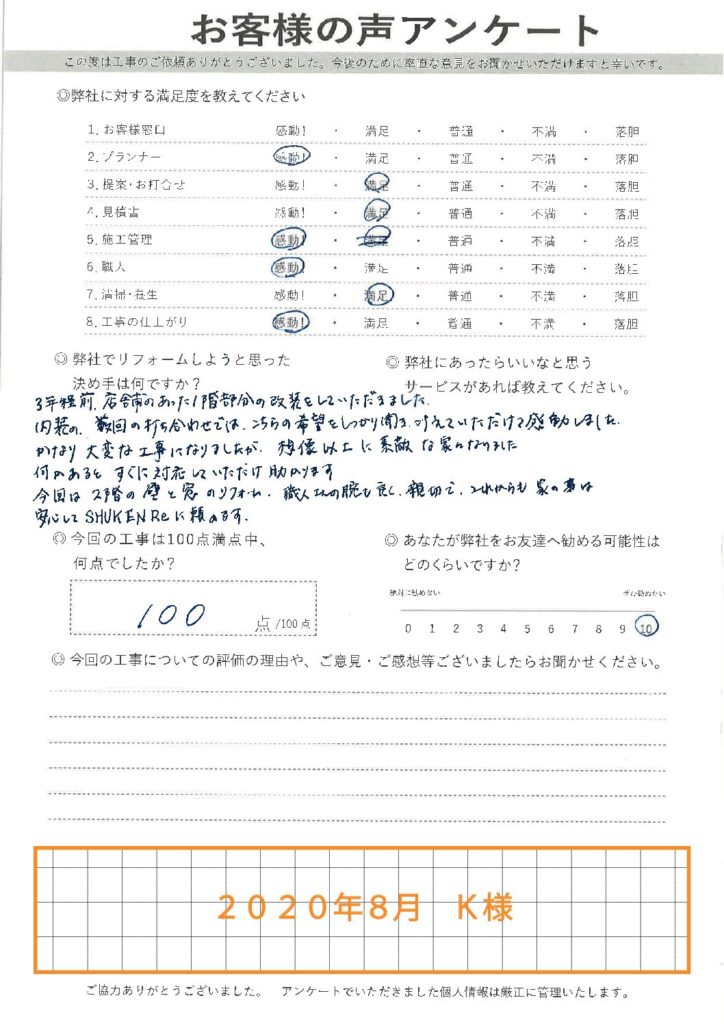 お客様の声アンケート
この度は工事のご依頼ありがとうございました。今後のために率直な意見をお聞かせいただけますと幸いです。
◎弊社に対する満足度を教えてください
1. お客様窓口 感動! ・ 満足 ・ 普通 ・ 不満 ・ 落胆
2. プランナー 感動! ・ 満足 ・ 普通 ・ 不満 ・ 落胆
3. 提案・お打合せ 感動! ・ 満足 ・ 普通 ・ 不満 ・ 落胆
4. 見積書 感動! ・ 満足 ・ 普通 ・ 不満 ・ 落胆
5. 施工管理 感動! ・ 満足 ・ 普通 ・ 不満 ・ 落胆
6. 職人 感動! ・ 満足 ・ 普通 ・ 不満 ・ 落胆
7. 清掃・養生 感動! ・ 満足 ・ 普通 ・ 不満 ・ 落胆
8. 工事の仕上がり 感動! ・ 満足 ・ 普通 ・ 不満 ・ 落胆
◎ 弊社でリフォームしようと思った
決め手は何ですか?
◎ 弊社にあったらいいなと思う
サービスがあれば教えてください。
3年程前、店舗のあった1階部分の改装をしていただきました。
内装の、数回の打ち合わせでは、こちらの希望をしっかり聞き、叶えていただけて感動しました。
かなり大変な工事になりましたが、想像以上に素敵な家になりました
何かあると すぐに対応していただけ助かります
今回は2階の壁と窓のリフォーム、職人さんの腕も良く、親切で、これからも家の事は
安心してSHUKEN Reに頼めます。
◎ 今回の工事は100点満点中、
何点でしたか?
100 点 /100点
◎ あなたが弊社をお友達へ勧める可能性は
どのくらいですか?
絶対に勧めない ぜひ勧めたい
0 1 2 3 4 5 6 7 8 9 10
◎ 今回の工事についての評価の理由や、ご意見・ご感想等ございましたらお聞かせください。
2020年8月 K様
ご協力ありがとうございました。 アンケートでいただきました個人情報は厳正に管理いたします。